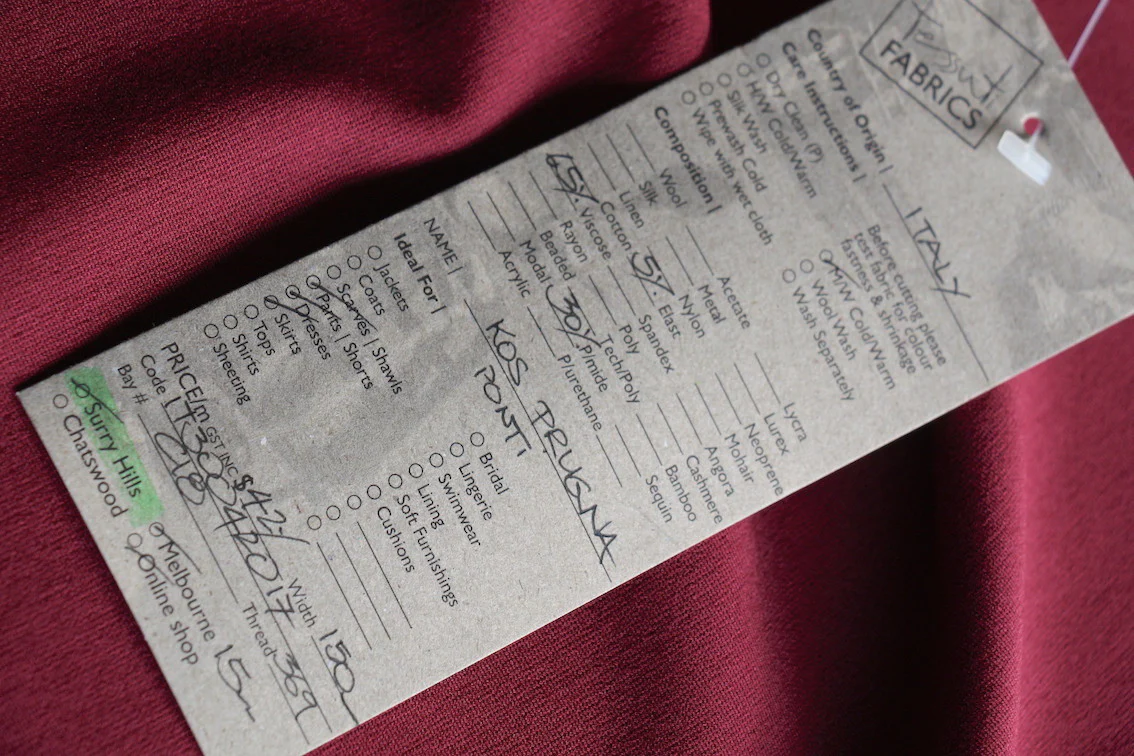 Tessuti
FABRICS
Country of Origin | ITALY
Care Instructions |
Before cutting please
test fabric for colour
fastness & shrinkage
Dry Clean (P)
H/W Cold/Warm
Silk Wash
Prewash Cold
Wipe with wet cloth
M/W Cold/Warm
Wool Wash
Wash Separately
Composition |
Wool
Silk
Linen
Cotton
65% Viscose
Rayon
Beaded
Modal
Acrylic
Acetate
Metal
Nylon
5% Elast
Spandex
Poly
Tech/Poly
30% P/mide
P/urethane
Lycra
Lurex
Neoprene
Mohair
Angora
Cashmere
Bamboo
Sequin
NAME | KOS PRUGNA
PONTI
Ideal For |
Jackets
Coats
Scarves | Shawls
Pants | Shorts
Dresses
Skirts
Tops
Shirts
Sheeting
Bridal
Lingerie
Swimwear
Lining
Soft Furnishings
Cushions
PRICE/m GST INC $42/ Width 150
Code Thread 369
Bay # C18
Surry Hills
Chatswood
Melbourne 15m
Online shop